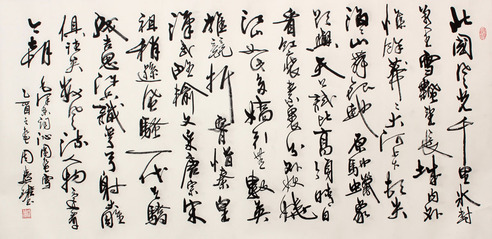 北國風光千里冰封
萬里雪飄望長城内外
惟餘莽莽大河上下頓失
滔滔山舞銀蛇原馳蠟象
欲與天公試比高須晴日
看紅裝素裹分外妖嬈
江山如此多嬌引無數英
雄競折腰惜秦皇
漢武略輸文采唐宗宋
祖稍遜風騷一代天驕
成吉思汗只識彎弓射大雕
俱往矣數風流人物還看
今朝
毛澤東詞沁園春雪
乙酉之